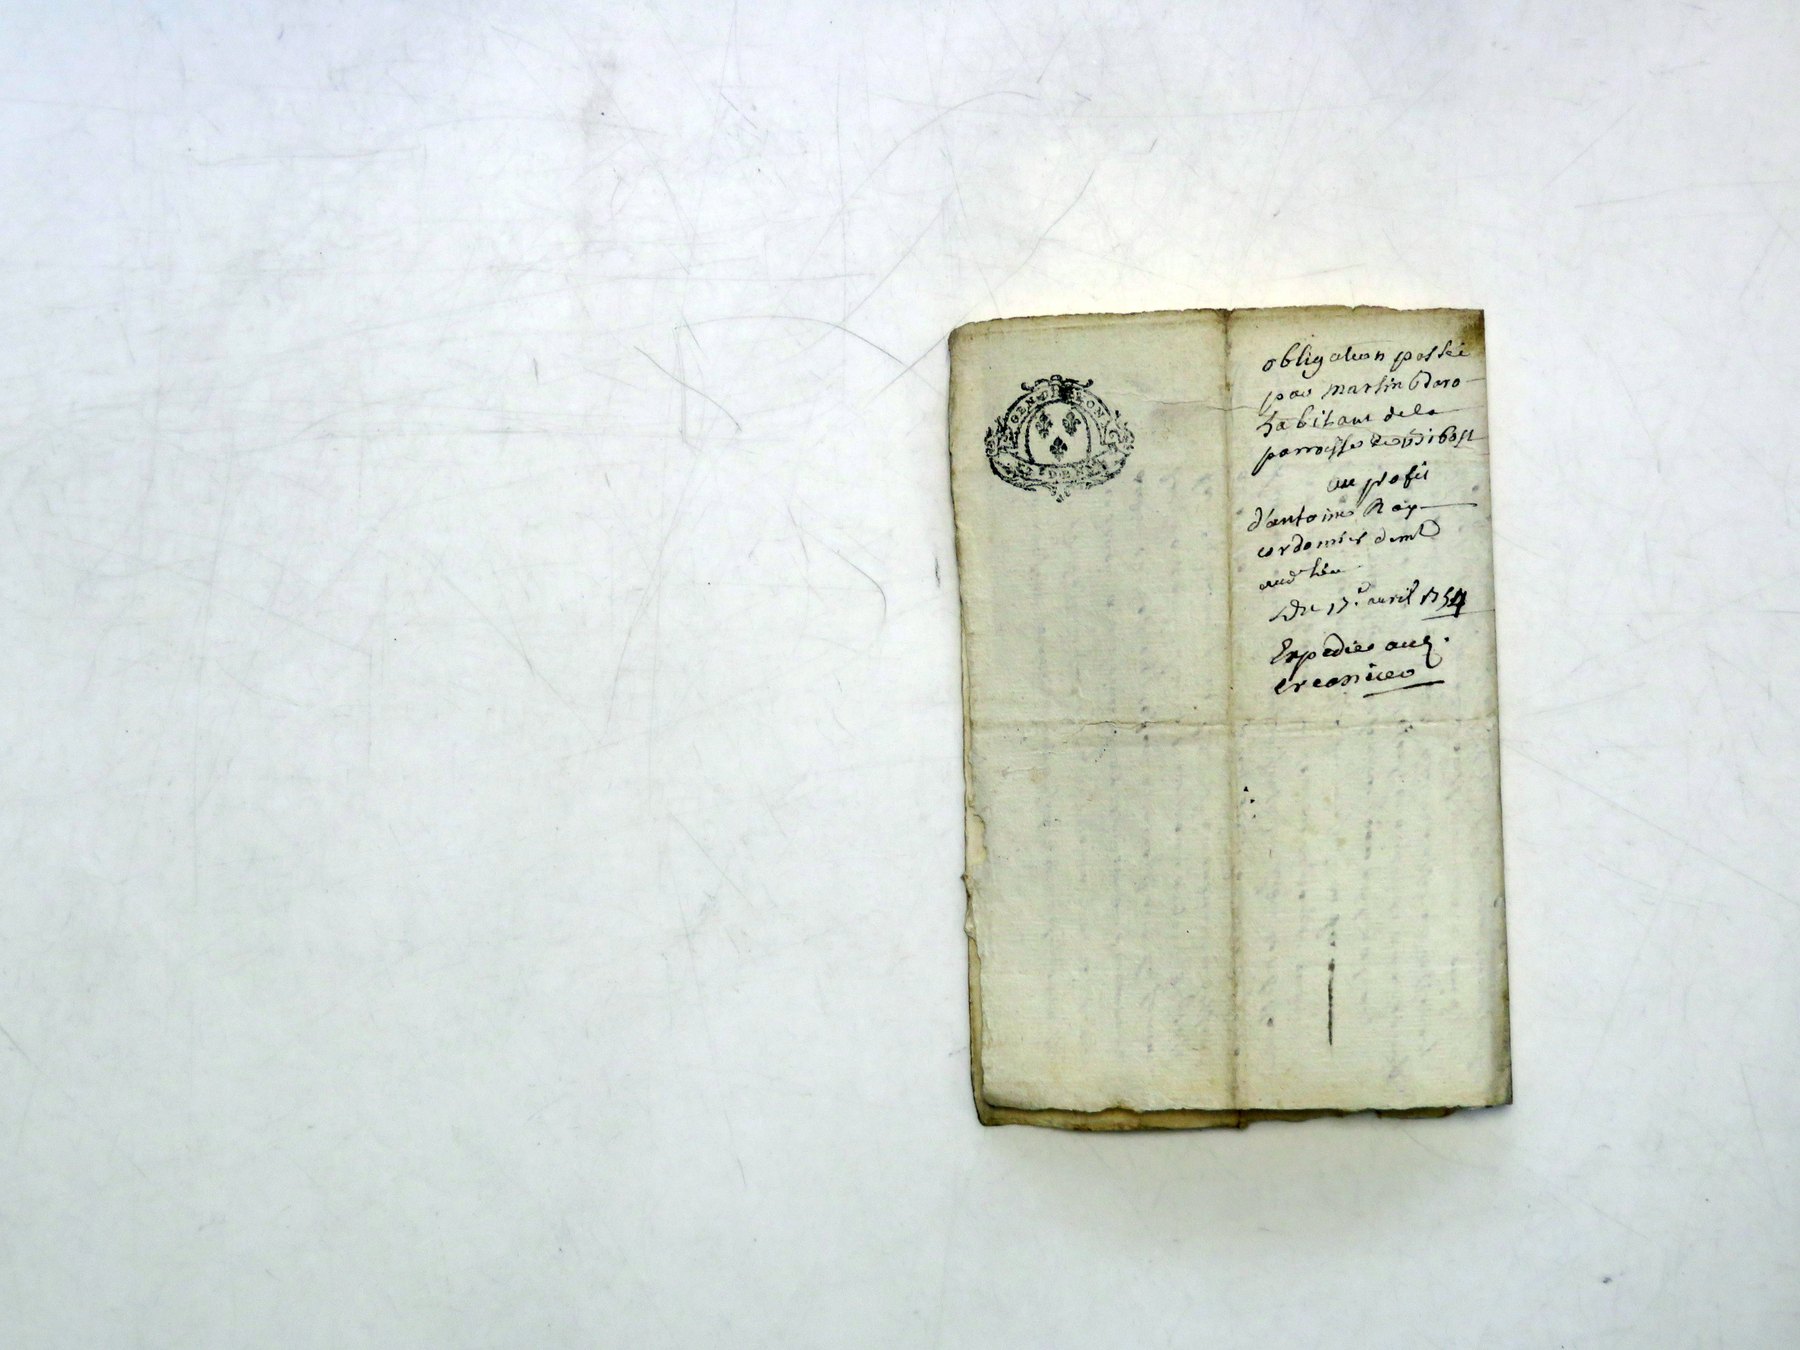 obligation passée
par martin
habitant de la
parroisse de
au profit
d'antoine Roy
cordonnier dem.t
aud. lieu
Du 17.e avril 1754
Expediée au
creancier